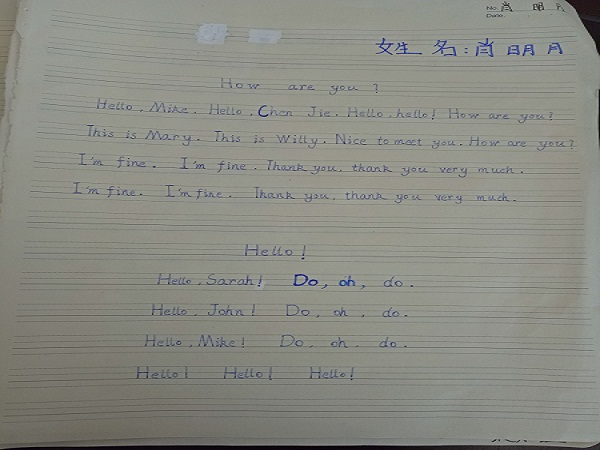 No. 肖 明 月
Date
姓 名:肖 明 月
How are you ?
Hello, Mike. Hello, Chen Jie. Hello, hello! How are you?
This is Mary. This is Willy. Nice to meet you. How are you?
I'm fine. I'm fine. Thank you, thank you very much.
I'm fine. I'm fine. Thank you, thank you very much.
Hello!
Hello, Sarah! Do, oh, do.
Hello, John! Do, oh, do.
Hello, Mike! Do, oh, do.
Hello! Hello! Hello!